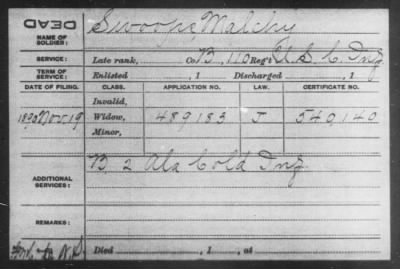 DEAD
NAME OF SOLDIER: Swoope, Malchy
SERVICE: Late rank, Co. B, 110 Reg't U.S.C. Inf
TERM OF SERVICE: Enlisted , 1 Discharged , 1
DATE OF FILING. CLASS. APPLICATION NO. LAW. CERTIFICATE NO.
Invalid,
1890 Nov. 19 Widow, 489183 J 540,140
Minor,
ADDITIONAL SERVICES: B 2 Ala Cold Inf
REMARKS:
Died , 1 , at